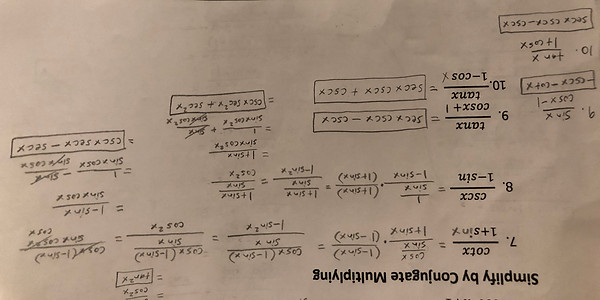 = tan²x
Simplify by Conjugate Multiplying
7. cotx / 1+sinx = cosx / sinx / 1+sinx · (1-sinx) / (1-sinx) = cosx(1-sinx) / sinx / 1-sin²x = cosx(1-sinx) / sinx / cos²x = cosx(1-sinx) / sinx cosx cosx
= 1-sinx / sinx cosx
= 1 / sinx cosx - sinx / sinx cosx
= cscx secx - secx
8. cscx / 1-sin = 1 / sinx / 1-sinx · (1+sinx) / (1+sinx) = 1+sinx / sinx / 1-sin²x = 1+sinx / sinx / cos²x
= 1+sinx / sinxcos²x
= 1 / sinxcos²x + sinx / sinxcos²x
= cscx sec²x + sec²x
9. tanx / cosx+1 = secx cscx - cscx
10. tanx / 1-cosx = secx cscx + cscx
9. sinx / cosx-1
-cscx - cotx
10. tanx / 1+cosx
secx cscx - cscx